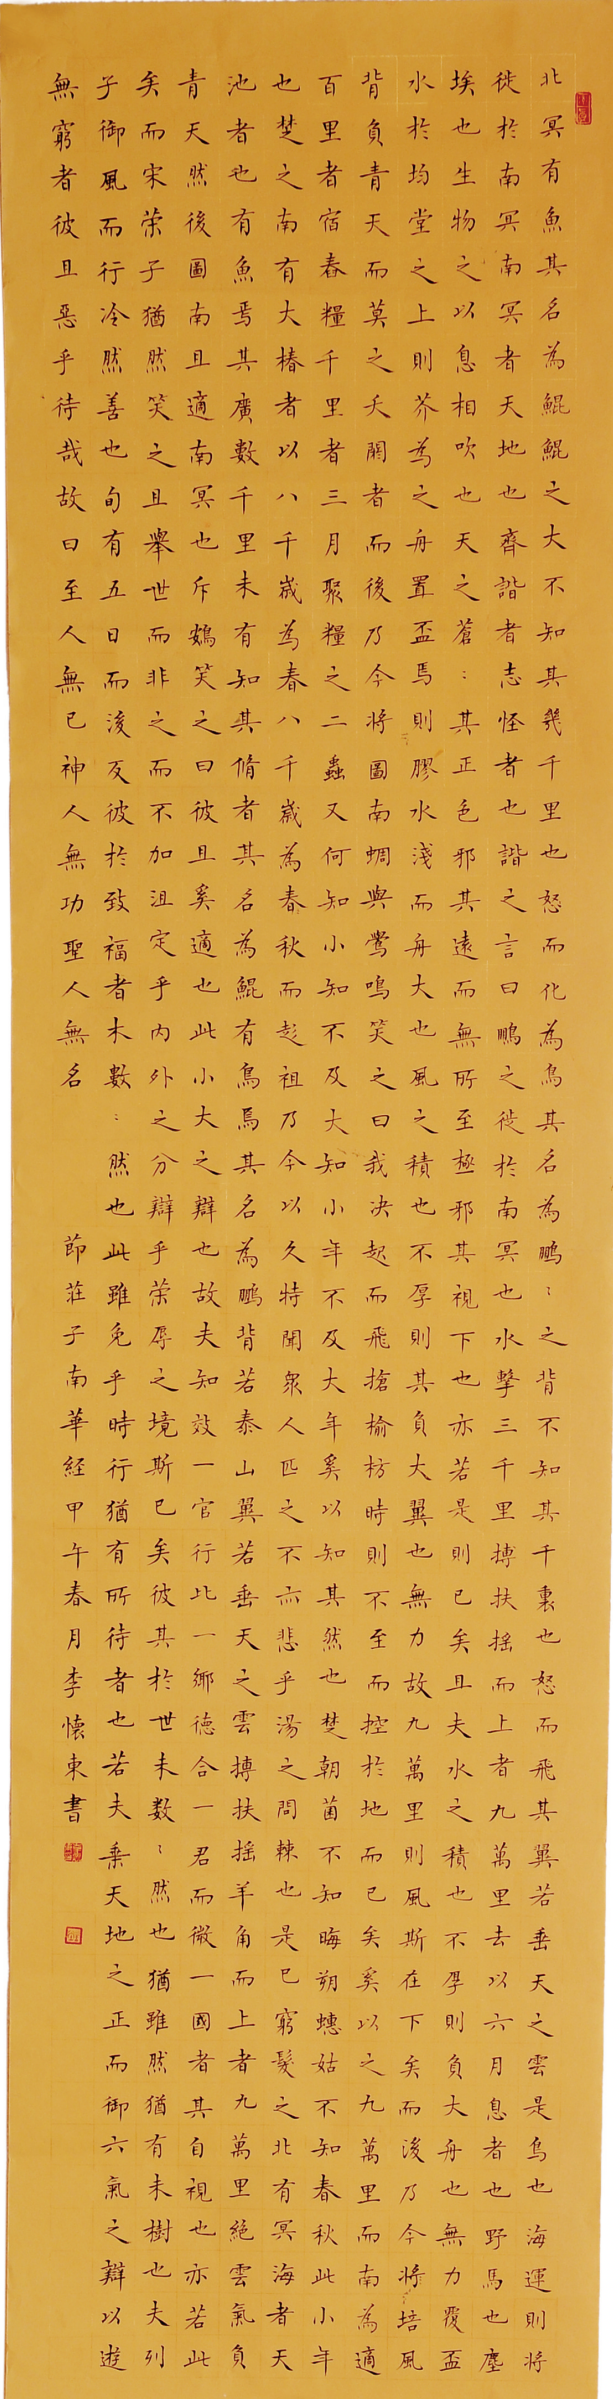 北冥有魚其名為鯤鯤之大不知其幾千里也怒而化為鳥其名為鵬〻之背不知其千裏也怒而飛其翼若垂天之雲是鳥也海運則將
徙於南冥南冥者天地也齊諧者志怪者也諧之言曰鵬之徙於南冥也水擊三千里摶扶摇而上者九萬里去以六月息者也野馬也塵
埃也生物之以息相吹也天之蒼〻其正色邪其遠而無所至極邪其視下也亦若是則已矣且夫水之積也不厚則負大舟也無力覆盃
水於坳堂之上則芥為之舟置盃焉則膠水淺而舟大也風之積也不厚則其負大翼也無力故九萬里則風斯在下矣而後乃今將培風
背負青天而莫之夭閼者而後乃今將圖南蜩與鷽鳴笑之曰我决起而飛搶榆枋時則不至而控於地而已矣奚以之九萬里而南為適
百里者宿舂糧千里者三月聚糧之二蟲又何知小知不及大知小年不及大年奚以知其然也楚朝菌不知晦朔蟪姑不知春秋此小年
也楚之南有大椿者以八千嵗為春八千嵗為春秋而彭祖乃今以久特聞衆人匹之不亦悲乎湯之問棘也是已窮髮之北有冥海者天
池者也有魚焉其廣數千里未有知其脩者其名為鯤有鳥焉其名為鵬背若泰山翼若垂天之雲摶扶摇羊角而上者九萬里絕雲氣負
青天然後圖南且適南冥也斥鷃笑之曰彼且奚適也此小大之辯也故夫知效一官行比一鄉德合一君而徵一國者其自視也亦若此
矣而宋荣子猶然笑之且舉世而非之而不加沮定乎内外之分辯乎荣辱之境斯已矣彼其於世未数〻然也猶雖然猶有未樹也夫列
子御風而行冷然善也旬有五日而後反彼於致福者未數〻然也此雖免乎時行猶有所待者也若夫乘天地之正而御六氣之辯以遊
無窮者彼且惡乎待哉故曰至人無已神人無功聖人無名
節莊子南華経甲午春月李懷東書